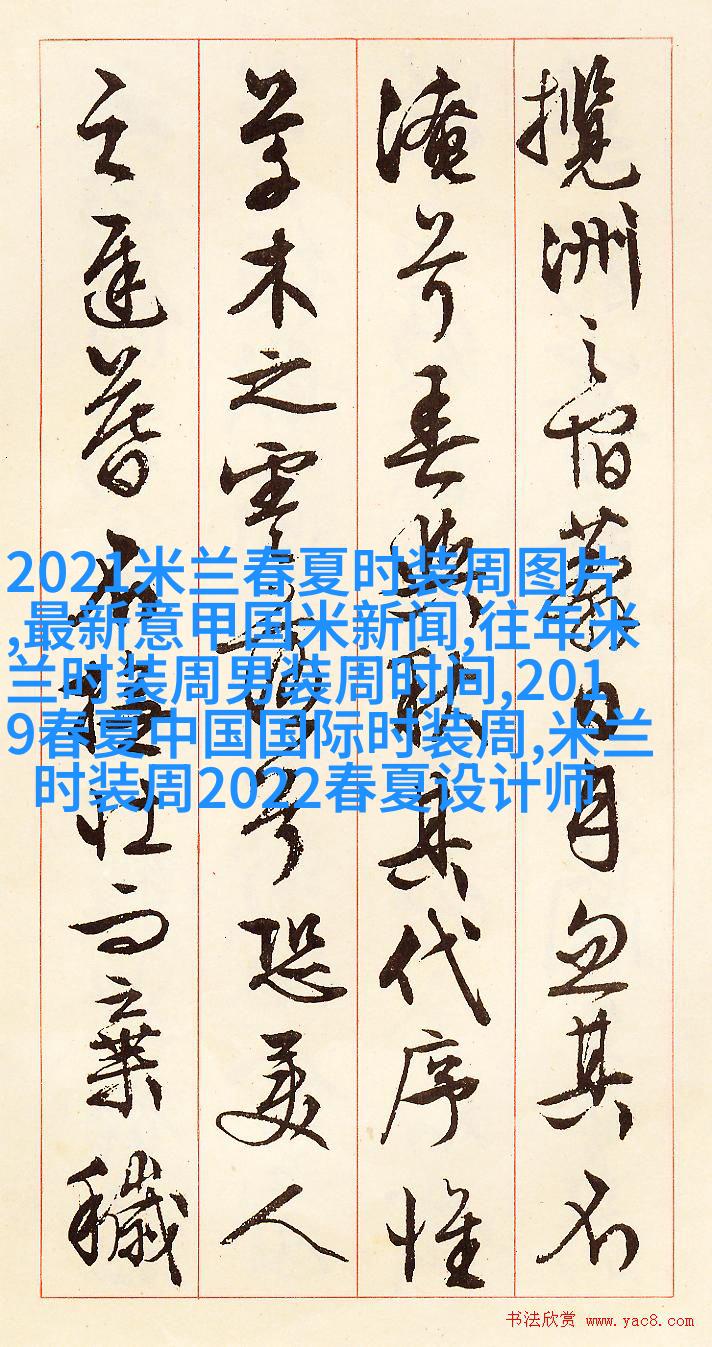 攬洲之宿莽日月忽其不
淹兮春與秋其代序惟
草木之零落兮恐美人
之遲暮不撫壯而棄穢
2021米兰春夏时装周图片
,最新意甲国米新闻,往年米
兰时装周男装周时间,201
9春夏中国国际时装周,米兰
时装周2022春夏设计师
书法欣赏 www.yac8.com